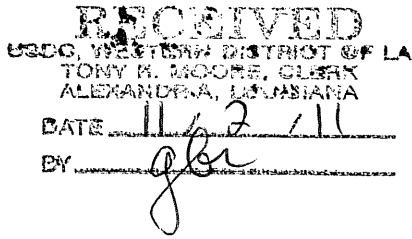 RECEIVED
USDC, WESTERN DISTRICT OF LA
TONY R. MOORE, CLERK
ALEXANDRIA, LOUISIANA
DATE 11 / 2 / 11
BY gbr